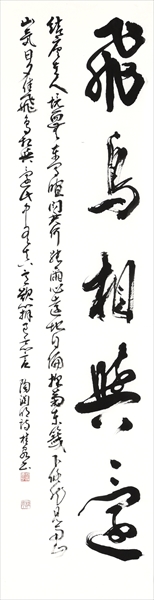 飛鳥相與還
結廬在人境而無車馬喧問君何能爾心遠地自偏採菊東籬下悠然見南山
山氣日夕佳飛鳥相與還此中有真意欲辨已忘言 陶淵明詩